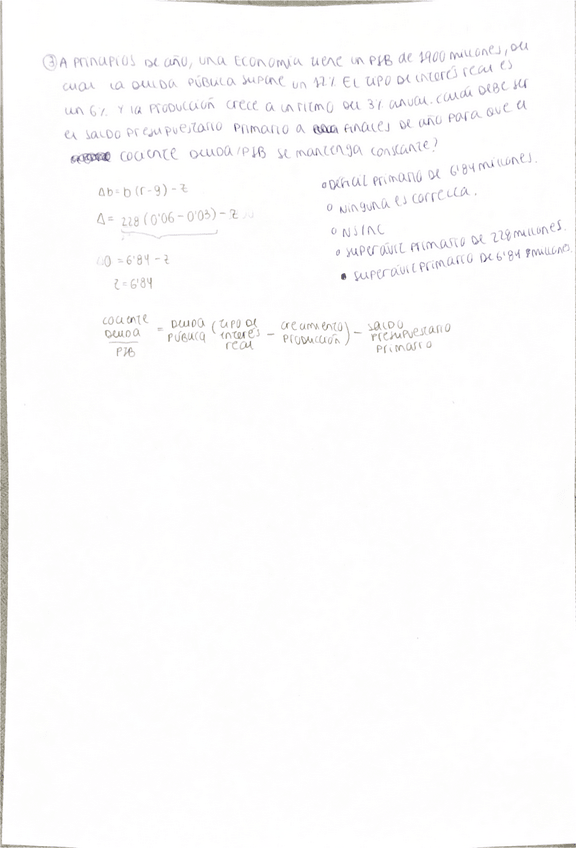 ③ A principios de año, una economía tiene un PIB de 1900 millones, del
cual la deuda pública supone un 12% El tipo de interés real es
un 6% y la producción crece a un ritmo del 3% anual. Cuál debe ser
el saldo presupuestario primario a finales de año para que el
cociente deuda/PIB se mantenga constante?
Δb = b (r-g) - z
Δ = 228 (0'06 - 0'03) - z
0 = 6'84 - z
z = 6'84
o Déficit primario de 6'84 millones.
o Ninguna es correcta.
o NS/NC
o superávit primario de 228 millones.
• superávit primario de 6'84 millones.
cociente deuda / PIB = deuda pública (tipo de interés real - crecimiento producción) - saldo presupuestario primario